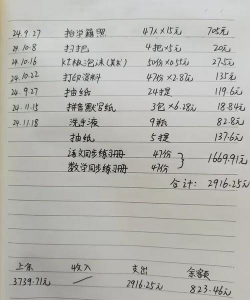 24.9.27 拍学籍照 47人×15元 705元
24.10.8 扫把 4把×5元 20元
24.10.16 kt板泡沫 50份×0.55元 27.5元
24.10.22 打印资料 47份×2.8元 135元
24.9.27 抽纸 24提 119.6元
24.11.15 拼音默写纸 3包×6.28元 18.84元
24.11.18 洗手液 9瓶 82.8元
抽纸 5提 137.6元
语文同步练习册 47份
数学同步练习册 47份 } 1669.91元
合计: 2916.25元
上余 收入 支出 余额
3739.71元 / 2916.25元 823.46元